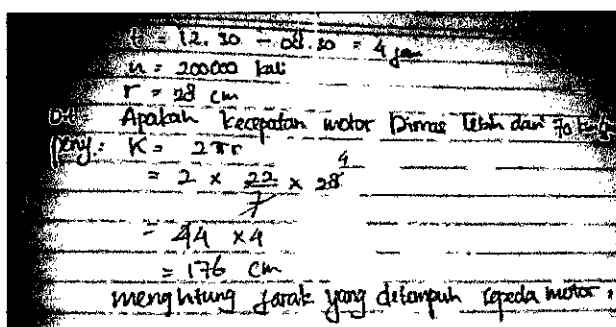 t = 12.30 - 08.30 = 4 jam
n = 200000 kali
r = 28 cm
Dit: Apakah kecepatan motor Dimas lebih dari 70
peny: K = 2πr
= 2 × 22/7 × 28 4
= 44 × 4
= 176 cm
menghitung jarak yang ditempuh sepeda motor,